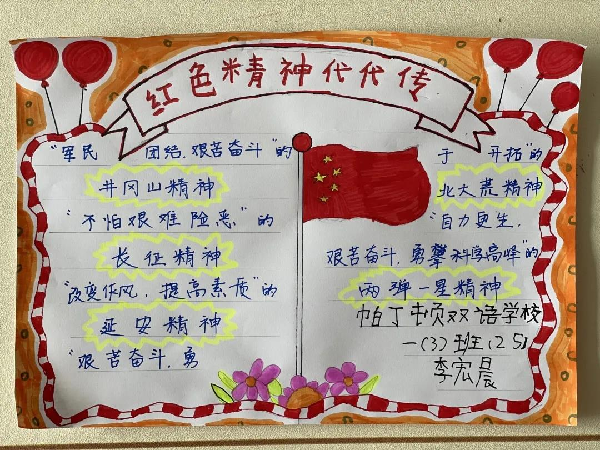 红色精神代代传
"军民 团结、艰苦奋斗"的
井冈山精神
"不怕艰难险恶"的
长征精神
"改变作风、提高素质"的
延安精神
"艰苦奋斗、勇
于 开拓"的
北大荒精神
"自力更生,
艰苦奋斗、勇攀科学高峰"的
两弹一星精神
帕丁顿双语学校
一(3)班(25)
李宏晨